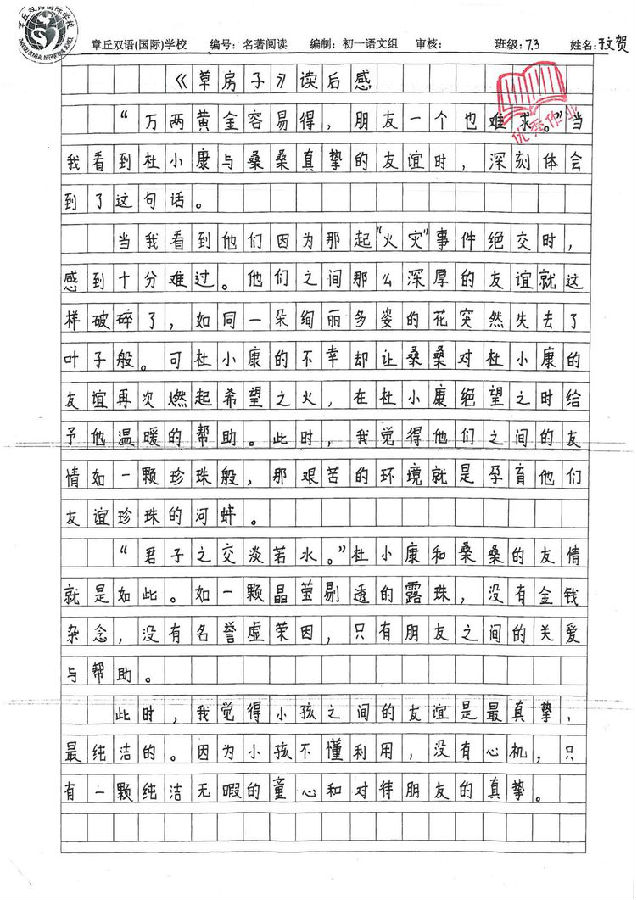 章丘双语(国际)学校 编号：名著阅读 编制：初一语文组 审核： 班级：7.3 姓名：
优秀作业
《草房子》读后感
“万两黄金容易得，朋友一个也难求。”当
我看到杜小康与桑桑真挚的友谊时，深刻体会
到了这句话。
当我看到他们因为那起“火灾”事件绝交时，
感到十分难过。他们之间那么深厚的友谊就这
样破碎了，如同一朵绚丽多姿的花突然失去了
叶子般。可杜小康的不幸却让桑桑对杜小康的
友谊再次燃起希望之火，在杜小康绝望之时给
予他温暖的帮助。此时，我觉得他们之间的友
情如一颗珍珠般，那艰苦的环境就是孕育他们
友谊珍珠的河蚌。
“君子之交淡若水。”杜小康和桑桑的友情
就是如此。如一颗晶莹剔透的露珠，没有金钱
杂念，没有名誉虚荣因，只有朋友之间的关爱
与帮助。
此时，我觉得小孩之间的友谊是最真挚、
最纯洁的。因为小孩不懂利用，没有心机，只
有一颗纯洁无暇的童心和对待朋友的真挚。